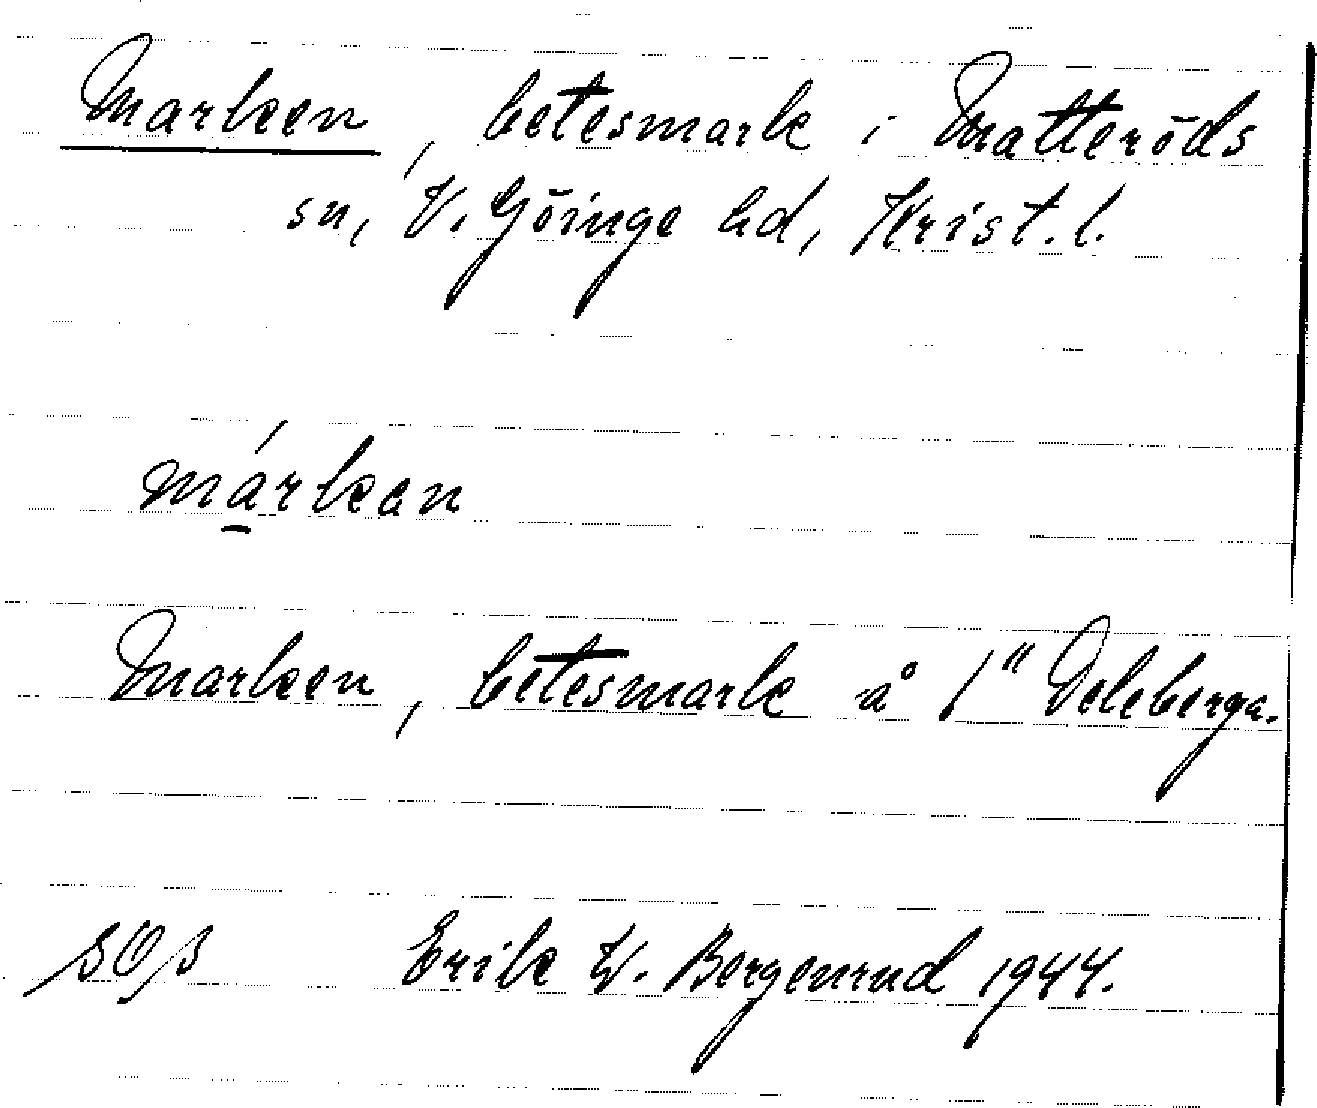 Marken, betesmark i Matteröds
sn, V. Göinge hd, Krist. l.
márkan
Marken, betesmark å 1" Deleberga.
Erik W. Bergenrud 1944.